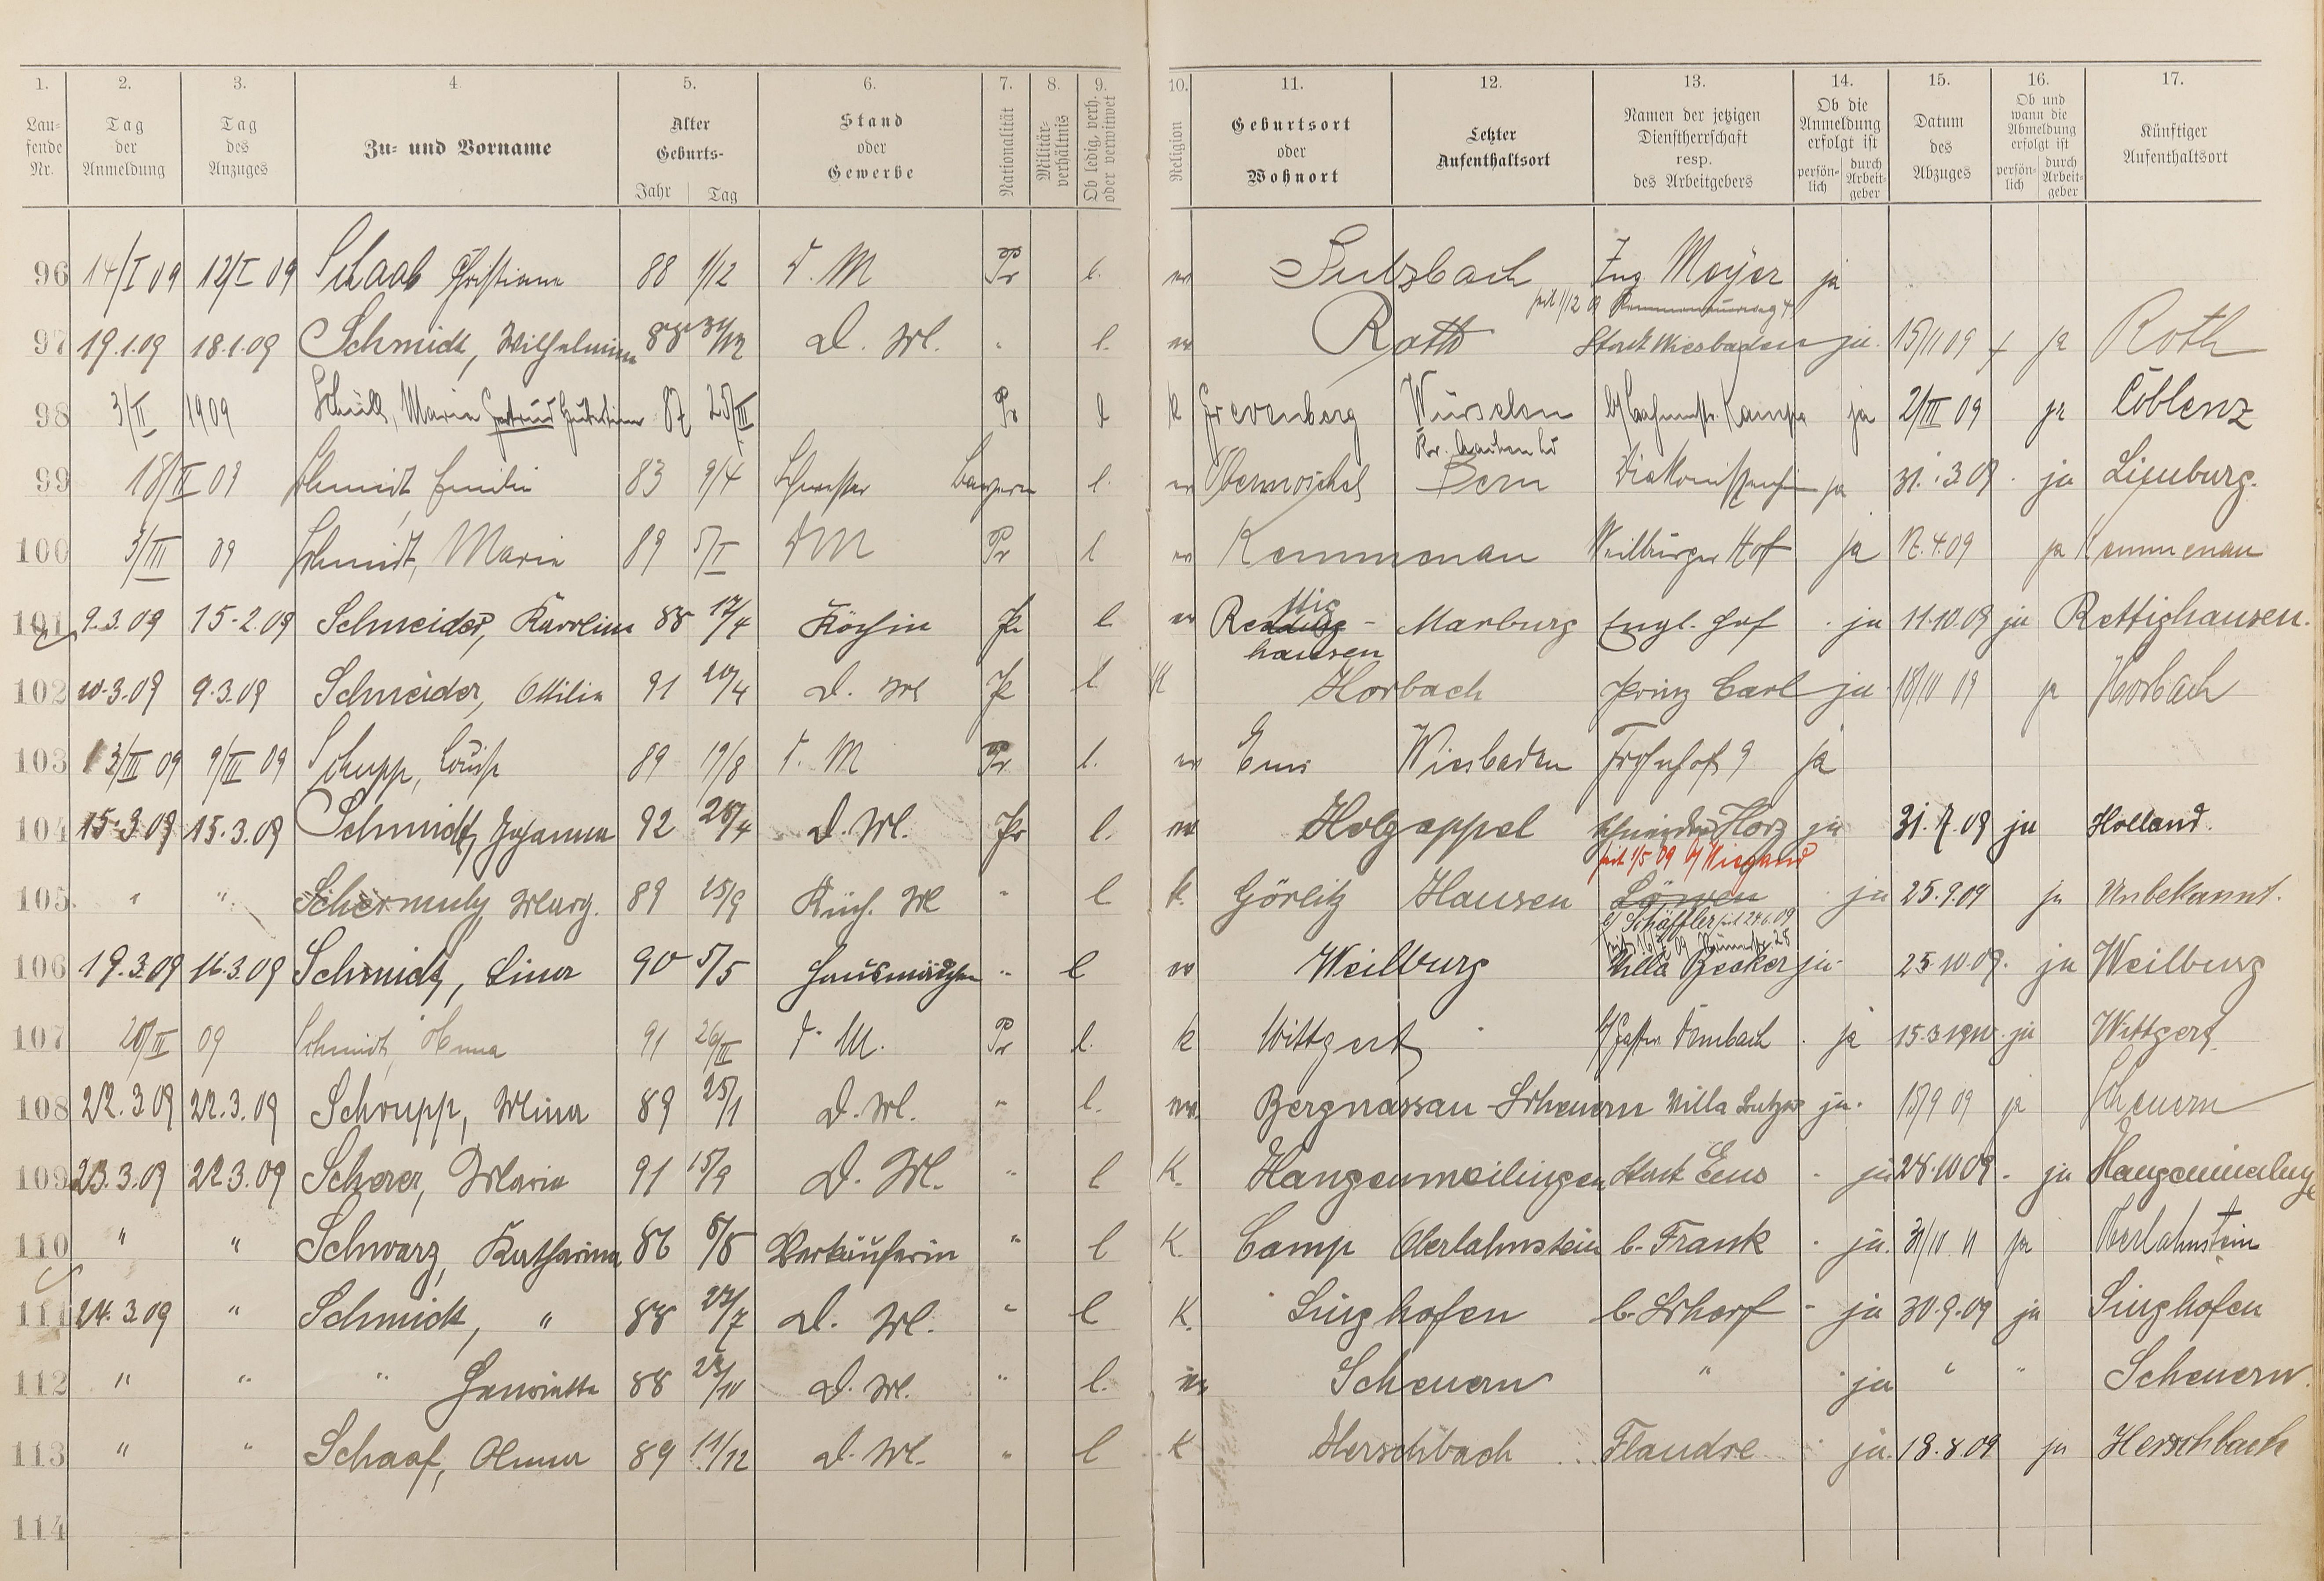 1. 2. 3. 4 5. 6. 7. 8. 9. 10. 11. 12. 13. 14. 15. 16. 17.
Lau-
fende
Nr.
Tag
der
Anmeldung
Tag
des
Anzuges
Zu- und Vorname
Alter
Geburts-
Jahr Tag
Stand
oder
Gewerbe
Nationalität
Militär-
verhältnis
Ob ledig, verh.
oder verwitwet
Religion
Geburtsort
oder
Wohnort
Letzter
Aufenthaltsort
Namen der jetzigen
Dienstherrschaft
resp.
des Arbeitgebers
Ob die
Anmeldung
erfolgt ist
persön-
lich
durch
Arbeit-
geber
Datum
des
Abzuges
Ob und
wann die
Abmeldung
erfolgt ist
persön-
lich
durch
Arbeit-
geber
Künftiger
Aufenthaltsort
96 14/I 09 12/I 09 Schaab Christiane 88 1/12 d. M Pr l. Sulzbach Meyer ja
97 19.1.09 18.1.09 Schmidt, Wilhelmine 88 D. M. " l. Roth Stadt Wiesbaden ja. 15/11 09 ja Roth
98 3/II 1909 Maria Gertrud 87 25/III Pr l k Grevenberg Würselen Kampe ja 2/III 09 ja Coblenz
Kr. Aachen Ld
99 18/II 09 Schmidt, Emilie 83 9/4 Schwester Bayern l. Obermoschel Bern ja 31.3.09. ja Limburg.
100 3/III 09 Schmidt, Maria 89 5/I d M Pr l Kemmenau Weilburger Hof ja 12.4.09 ja Kemmenau
101 9.3.09 15.2.09 Schneider, Karoline 88 17/4 Köchin Pr l. Rettig- Marburg Engl. Hof ja 11.10.09 ja Rettighausen.
hausen
102 10.3.09 9.3.09 Schneider, Ottilie 91 20/4 D. M Pr l. K Horbach Prinz Carl ja 18/10 09 ja Horbach
103 13/III 09 9/III 09 Schupp, Louise 89 19/8 d. M Pr l. Ems Wiesbaden 9 ja
104 15.3.09 15.3.09 Schmidt, Johanna 92 28/4 D. M. Pr l. Holzappel Schneider Horz ja 31.7.09 ja Holland.
seit 1/5 09 b/ Wiegand
105. " " Schermuly Marg. 89 25/9 Küch. M " l k. Görlitz Hausen Löwen ja 25.9.09 ja Unbekannt.
b/ Schäffler seit 24.6.09
106 19.3.09 16.3.09 Schmidt, Lina 90 5/5 Hausmädchen " l Weilburg Villa Becker ja 25.10.09. ja Weilburg
107 20/III 09 Schmidt, Anna 91 26/III d. M. Pr l. k Wittgert ja 15.3.1910. ja Wittgert
108 22.3.09 22.3.09 Schrupp, Mina 89 25/1 D. M. " l. Bergnassau-Scheuern Villa ja. 15/9 09 ja Scheuern
109 23.3.09 22.3.09 Scherer, Maria 91 15/9 D. M. " l K. Hangenmeilingen Stadt Ems ja 28.10.09. ja
110 " " Schwarz, Katharina 86 8/8 Verkäuferin " l K. Camp Oberlahnstein b. Frank ja. 31/10 11 ja Oberlahnstein
111 24.3.09 " Schmidt, " 88 23/7 D. M. " l K. Singhofen b. Schorf ja 30.9.09 ja Singhofen
112 " " " Henriette 88 D. M. " l. Scheuern " ja " " Scheuern.
113 " " Schaaf, Anna 89 11/12 D. M. " l K Herschbach Flandre ja. 18.8.09 ja Herschbach
114